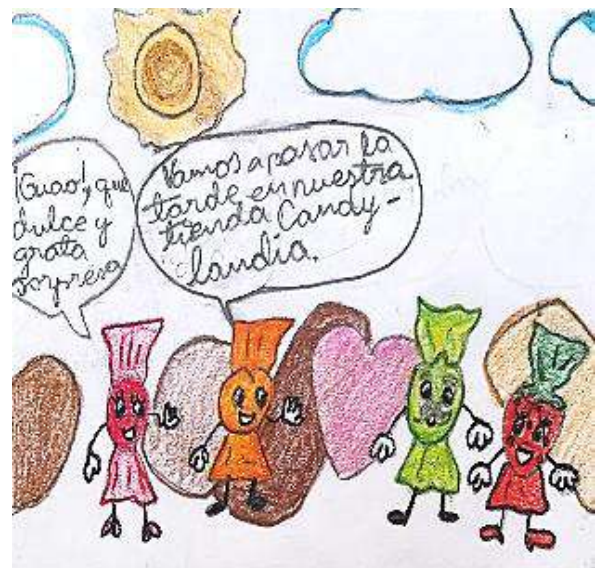 ¡Guao!, que
dulce y
grata
sorpresa
Vamos a pasar la
tarde en nuestra
tienda Candy-
landia.